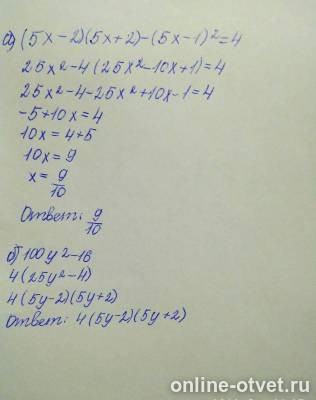 а) (5x-2)(5x+2)-(5x-1)²=4
25x²-4(25x²-10x+1)=4
25x²-4-25x²+10x-1=4
-5+10x=4
10x=4+5
10x=9
x=9/10
Ответ: 9/10
б) 100y²-16
4(25y²-4)
4(5y-2)(5y+2)
Ответ: 4(5y-2)(5y+2)
online-otvet.ru